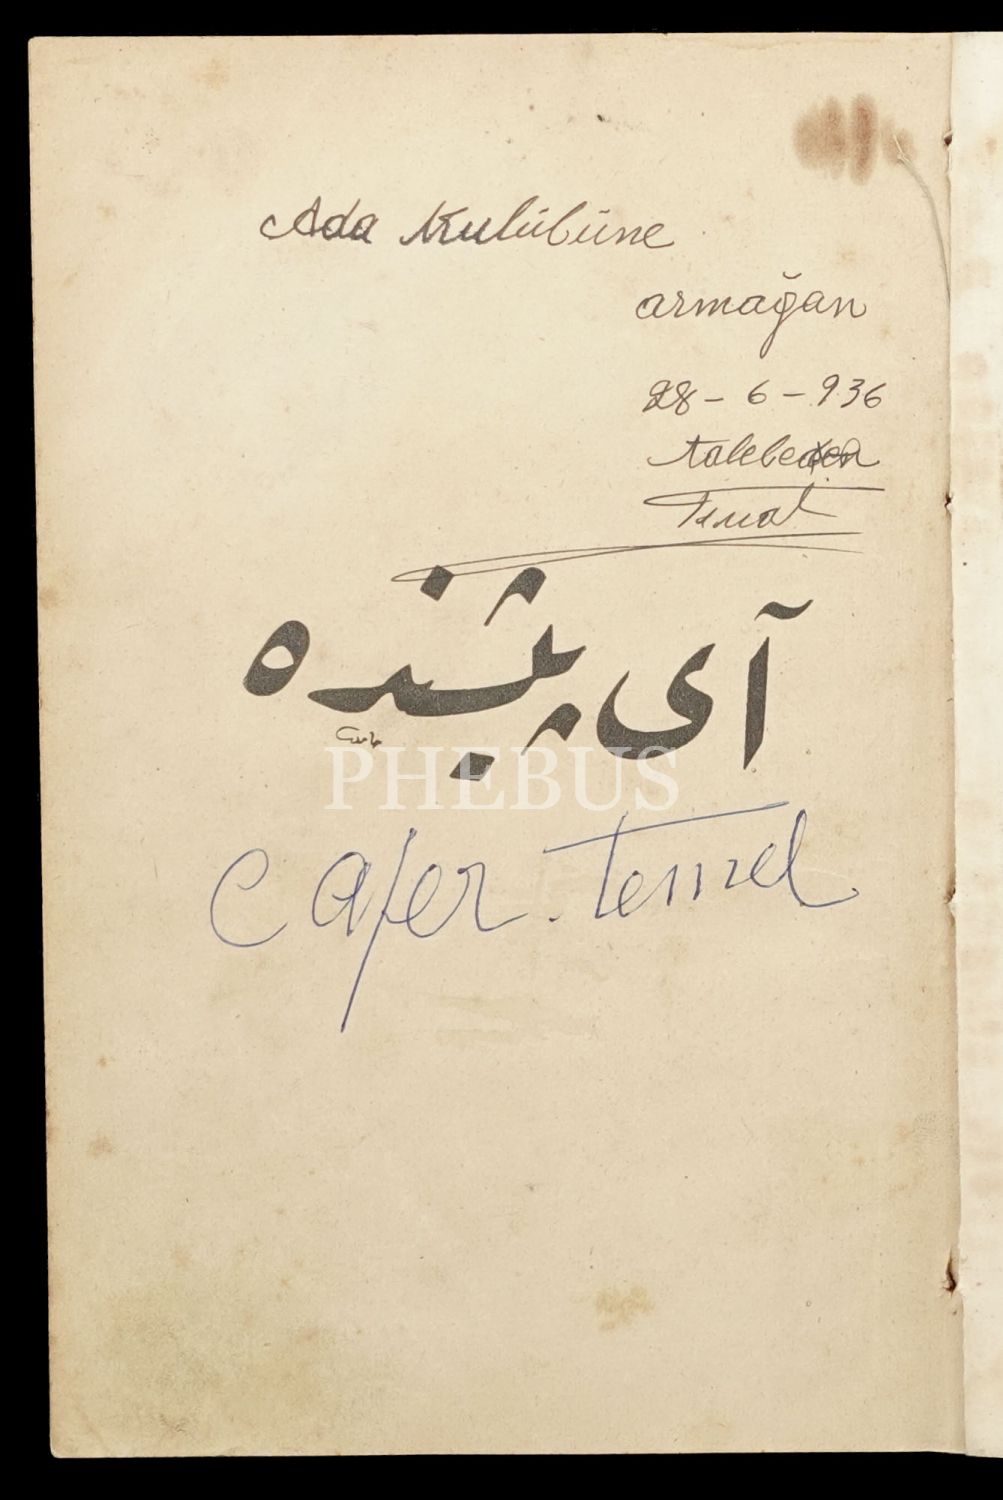 Ada Kulübüne
armağan
28 - 6 - 936
talebeden
آی پشنده
PHEBUS
Cafer. Temel